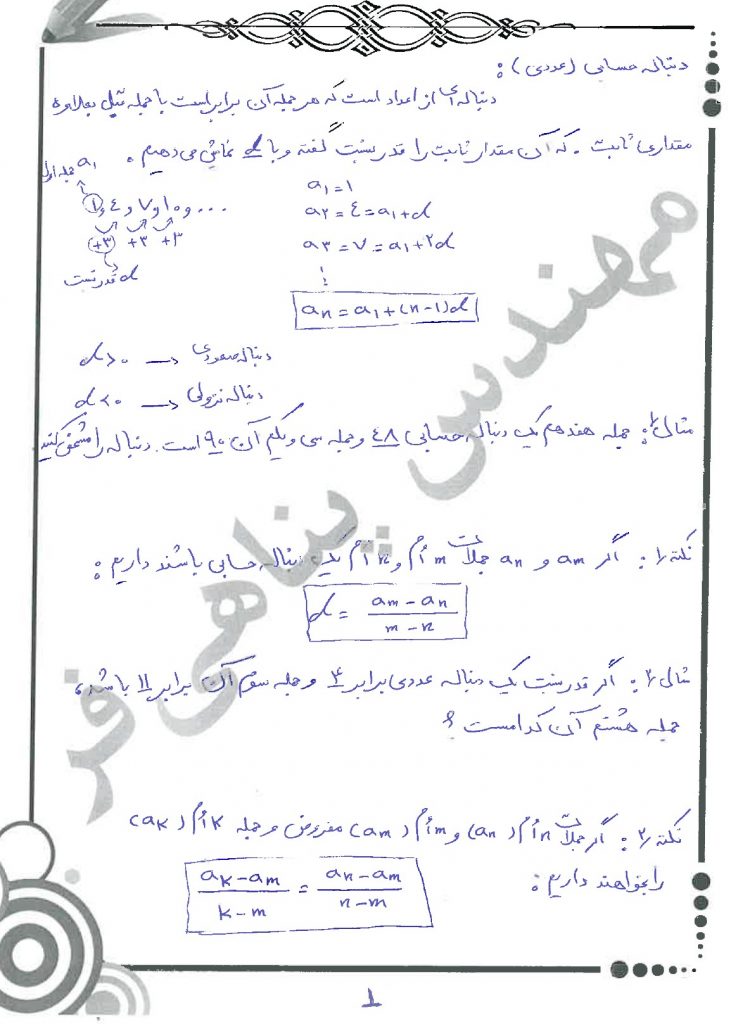 دنباله حسابی (عددی):
دنباله‌ای از اعداد است که هر جمله آن برابر است با جمله قبل بعلاوه
مقداری ثابت. که آن مقدار ثابت را قدرنسبت گفته و با d نمایش می‌دهیم.
a₁ جمله اول
۱, ۴, ۷, ۱۰, ...
+۳ +۳ +۳
d قدرنسبت
a₁=۱
a۲=٤=a₁+d
a۳=۷=a₁+۲d
aₙ=a₁+(n-1)d
d>۰ → دنباله صعودی
d<۰ → دنباله نزولی
مثال۱: جمله هفدهم یک دنباله حسابی ٤۸ و جمله سی و یکم آن ۹۰ است. دنباله را مشخص کنید
نکته۱: اگر aₘ و aₙ جملات mاُم و nاُم یک دنباله حسابی باشند داریم:
d = (aₘ-aₙ)/(m-n)
مثال۲: اگر قدرنسبت یک دنباله عددی برابر ۴ و جمله سوم آن برابر ۱۱ باشد،
جمله هشتم آن کدامست؟
نکته۲: اگر جملات nاُم (aₙ) و mاُم (aₘ) مفروض و جمله kاُم (aₖ)
را بخواهند داریم:
(aₖ-aₘ)/(k-m) = (aₙ-aₘ)/(n-m)
۱
مهندس پناهی فر